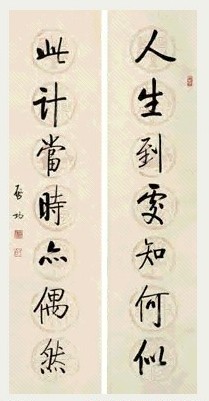 人生到處知何似
此计當時亦偶然
启功